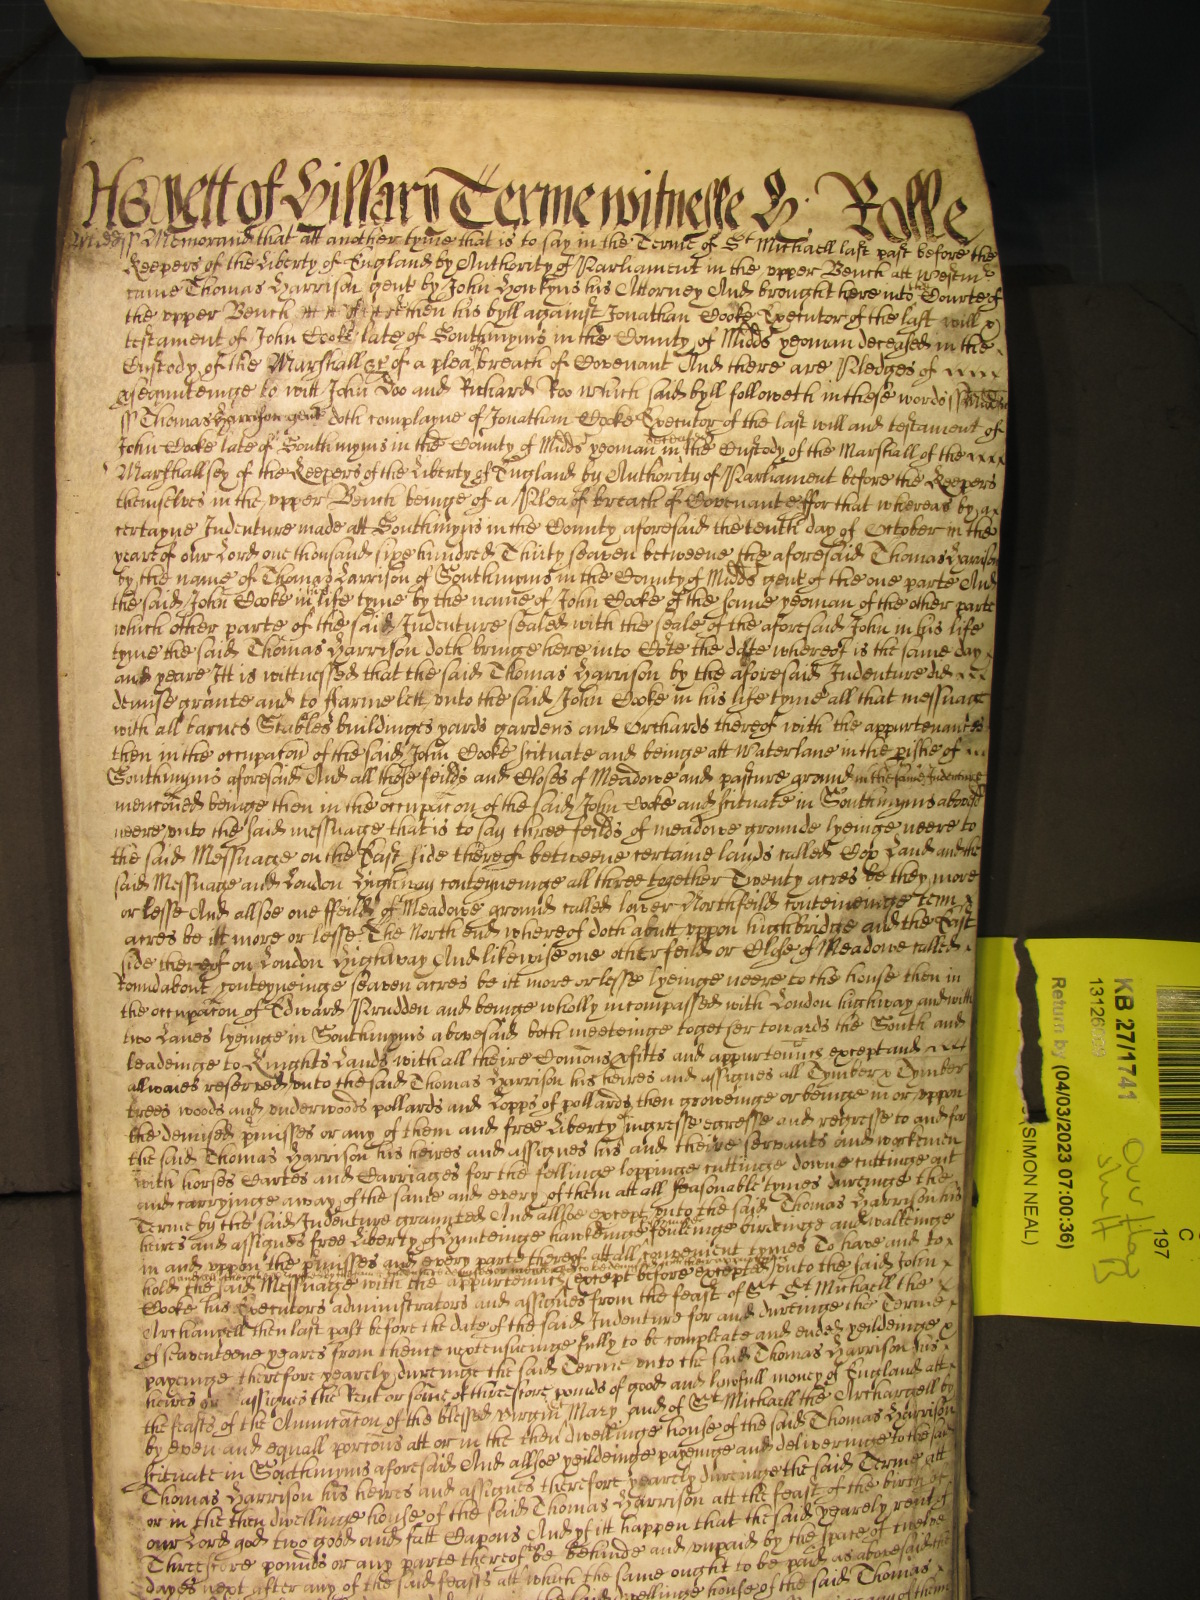 As yett of Hillary Terme witnesse H: Rolle
Midds ss Memorand that att another tyme that is to say in the Terme of St Michaell last past before the
Keepers of the Liberty of England by Authority of Parliament in the upper Bench att Westm
came Thomas Harrison gent by John Howkyns his Attorney And brought here into the Courte of
the upper Bench then his byll against Jonathan Cooke Executor of the last will &
testament of John Cooke late of Southmyms in the County of Midds yeoman deceased in the
Custody of the Marshall &c of a plea of breach of Covenant And there are Pledges of
prosequuteinge to witt John Doo and Richard Roo which said byll followeth in these words ss Midds
ss Thomas Harrison gent doth complayne of Jonathan Cooke Executor of the last will and testament of
John Cooke late of Southmyms in the County of Midds yeoman deceased in the Custody of the Marshall of the
Marshallsey of the Keepers of the Liberty of England by Authority of Parliament before the Keepers
themselves in the upper Bench beinge of a Plea of breach of Covenant ffor that whereas by a
certayne Indenture made att Southmyms in the County aforesaid the tenth day of October in the
yeare of our Lord one thousand sixe hundred Thirty seaven betweene the aforesaid Thomas Harrison
by the name of Thomas Harrison of Southmyms in the County of Midds gent of the one parte And
the said John Cooke in his life tyme by the name of John Cooke of the same yeoman of the other parte
which other parte of the said Indenture sealed with the seale of the aforesaid John in his life
tyme the said Thomas Harrison doth bringe here into Cote the date whereof is the same day
and yeare Itt is wittnessed that the said Thomas Harrison by the aforesaid Indenture did
demise grante and to ffarme lett unto the said John Cooke in his life tyme all that messuage
with all barnes Stables buildinges yards gardens and Orchards thereof with the appurtenances
then in the occupacon of the said John Cooke scituate and beinge att Waterlane in the pishe of
Southmyms aforesaid And all those feilds and Closes of Meadowe and pasture ground in the same Indenture
menconed beinge then in the occupacon of the said John Cooke and scituate in Southmyms abovesd
neere unto the said messuage that is to say three feilds of meadowe grounde lyeinge neere to
the said Messuage on the East side thereof betweene certaine lands called Cox Land and the
said Messuage and London Highway conteyneinge all three together Twenty acres be they more
or lesse And allsoe one ffeild of Meadowe ground called lower Northfeild conteineinge tenn
acres be itt more or lesse The North end whereof doth abutt uppon highbridge and the East
side thereof on London Highway And likewise one other feild or Close of Meadowe called
Roundabout conteyneinge seaven acres be itt more or lesse lyeinge neere to the house then in
the occupacon of Edward Prudden and beinge wholly incompassed with London highway and with
two Lanes lyeinge in Southmyms abovesaid both meeteinge together towards the South and
leadeinge to Knights Lands with all theire Comons pfitts and appurtennces except and
allwaies reserved unto the said Thomas Harrison his heires and assignes all Tymber & Tymber
trees woods and underwoods pollards and Lopps of pollards then groweinge or beinge in or uppon
the demised pmisses or any of them and free Liberty of ingresse egresse and regresse to and for
the said Thomas Harrison his heires and assignes his and theire servants and workemen
with horses Cartes and Carriages for the fellinge loppinge cuttinge downe cuttinge out
and carryinge away of the same and every of them att all seasonable tymes dureinge the
Terme by the said Indenture graunted And allsoe except unto the said Thomas Harrison his
heires and assignes free Liberty of Hunteinge hawkeinge fishinge fowlinge birdeinge and walkeinge
in and uppon the pmisses and every parte thereof att all convenient tymes To have and to
hold the said Messuage with the appurtennces except before excepted unto the said John
Cooke his Executors administrators and assignes from the feast of St Michaell the
Archangell then last past before the date of the said Indenture for and dureinge the Terme
of seaventeene yeares from thence next ensueinge fully to be compleate and ended yeildeinge &
payeinge therefore yearely dureinge the said Terme unto the said Thomas Harrison his
heires or assignes the Rent or some of threescore pounds of good and lawfull money of England att
the feasts of the Annuncacon of the blessed virgin Mary and of St Michaell the Archangell by
by even and equall porcons att or in the then dwellinge house of the said Thomas Harrison
scituate in Southmyms aforesaid And allsoe yeildeinge payeinge and deliveringe to the said
Thomas Harrison his heires and assignes therefore yearely dureinge the said Terme att
or in the then dwellinge house of the said Thomas Harrison att the feast of the birth of
our Lord god two good and fatt Capons And yf itt happen that the said yearely rent of
Threescore pounds or any parte thereof to be behinde and unpaid by the space of twelve
dayes next after any of the said feasts att which the same ought to be paid as abovesaid
dwellinge house of the said Thomas
KB 27/1741
Return by (04/03/2023 07:00:36)
(SIMON NEAL)
C
197